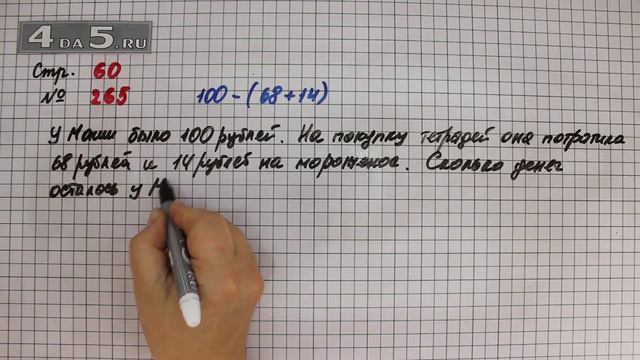 4 DA 5.RU
Стр. 60
№ 265 100-(68+14)
У Маши было 100 рублей. На покупку тетрадей она потратила
68 рублей и 14 рублей на мороженое. Сколько денег
осталось у М